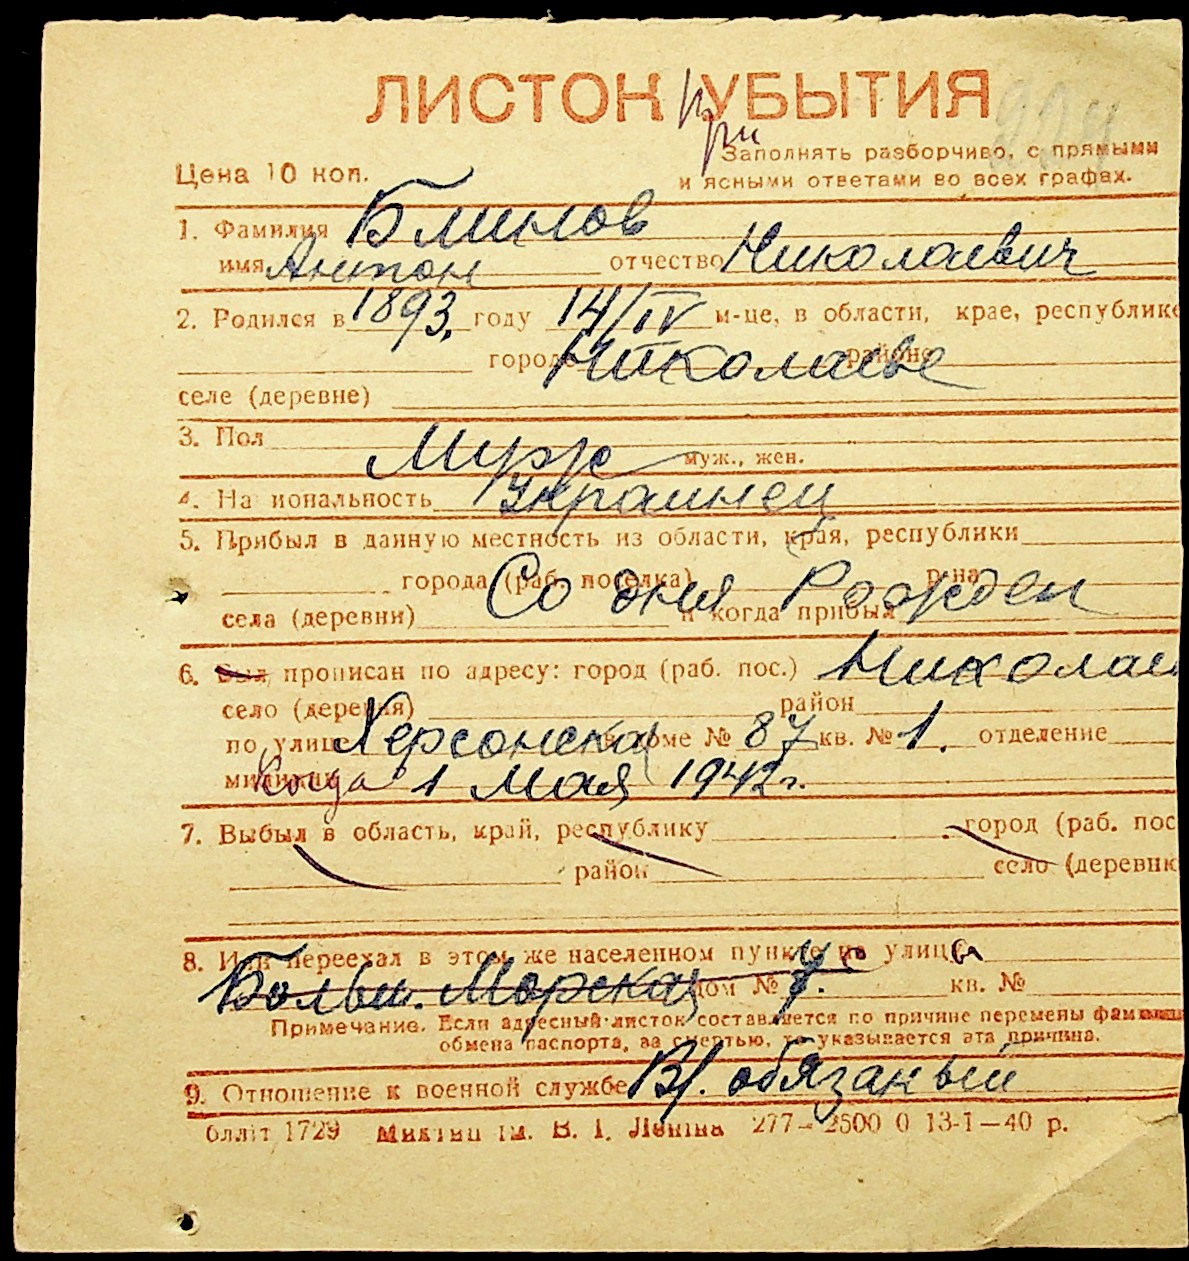 ЛИСТОК УБЫТИЯ
при
224
Цена 10 коп.
Заполнять разборчиво, с прямыми
и ясными ответами во всех графах.
1. Фамилия Блинов
имя Антон отчество Николаевич
2. Родился в 1893. году 14/IV м-це, в области, крае, республике
городе Николаеве районе
селе (деревне)
3. Пол Муж муж., жен.
4. На иональность Украинец
5. Прибыл в данную местность из области, края, республики
города (раб. поселка) р-на
Со дня Рожден
села (деревни) и когда прибыл
6. Был прописан по адресу: город (раб. пос.) Николаи
село (деревня) район
по улице Херсонская в доме № 87 кв. № 1. отделение
милиции Когда 1 Мая 1942 г.
7. Выбыл в область, край, республику город (раб. пос
район село (деревня
8. Или переехал в этом же населенном пункте на улицу
Больш. Морская дом № 7. кв. №
Примечание. Если адресный листок составляется по причине перемены фамилии
обмена паспорта, за смертью, то указывается эта причина.
9. Отношение к военной службе В/. обязаный
блліт 1729 ім. В. І. Леніна 277—2500 0 13-1—40 р.